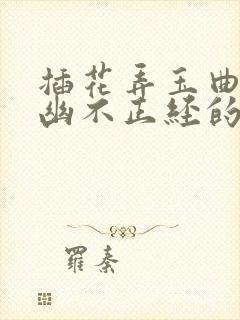 插花弄玉曲
幽不正经的
羅秦